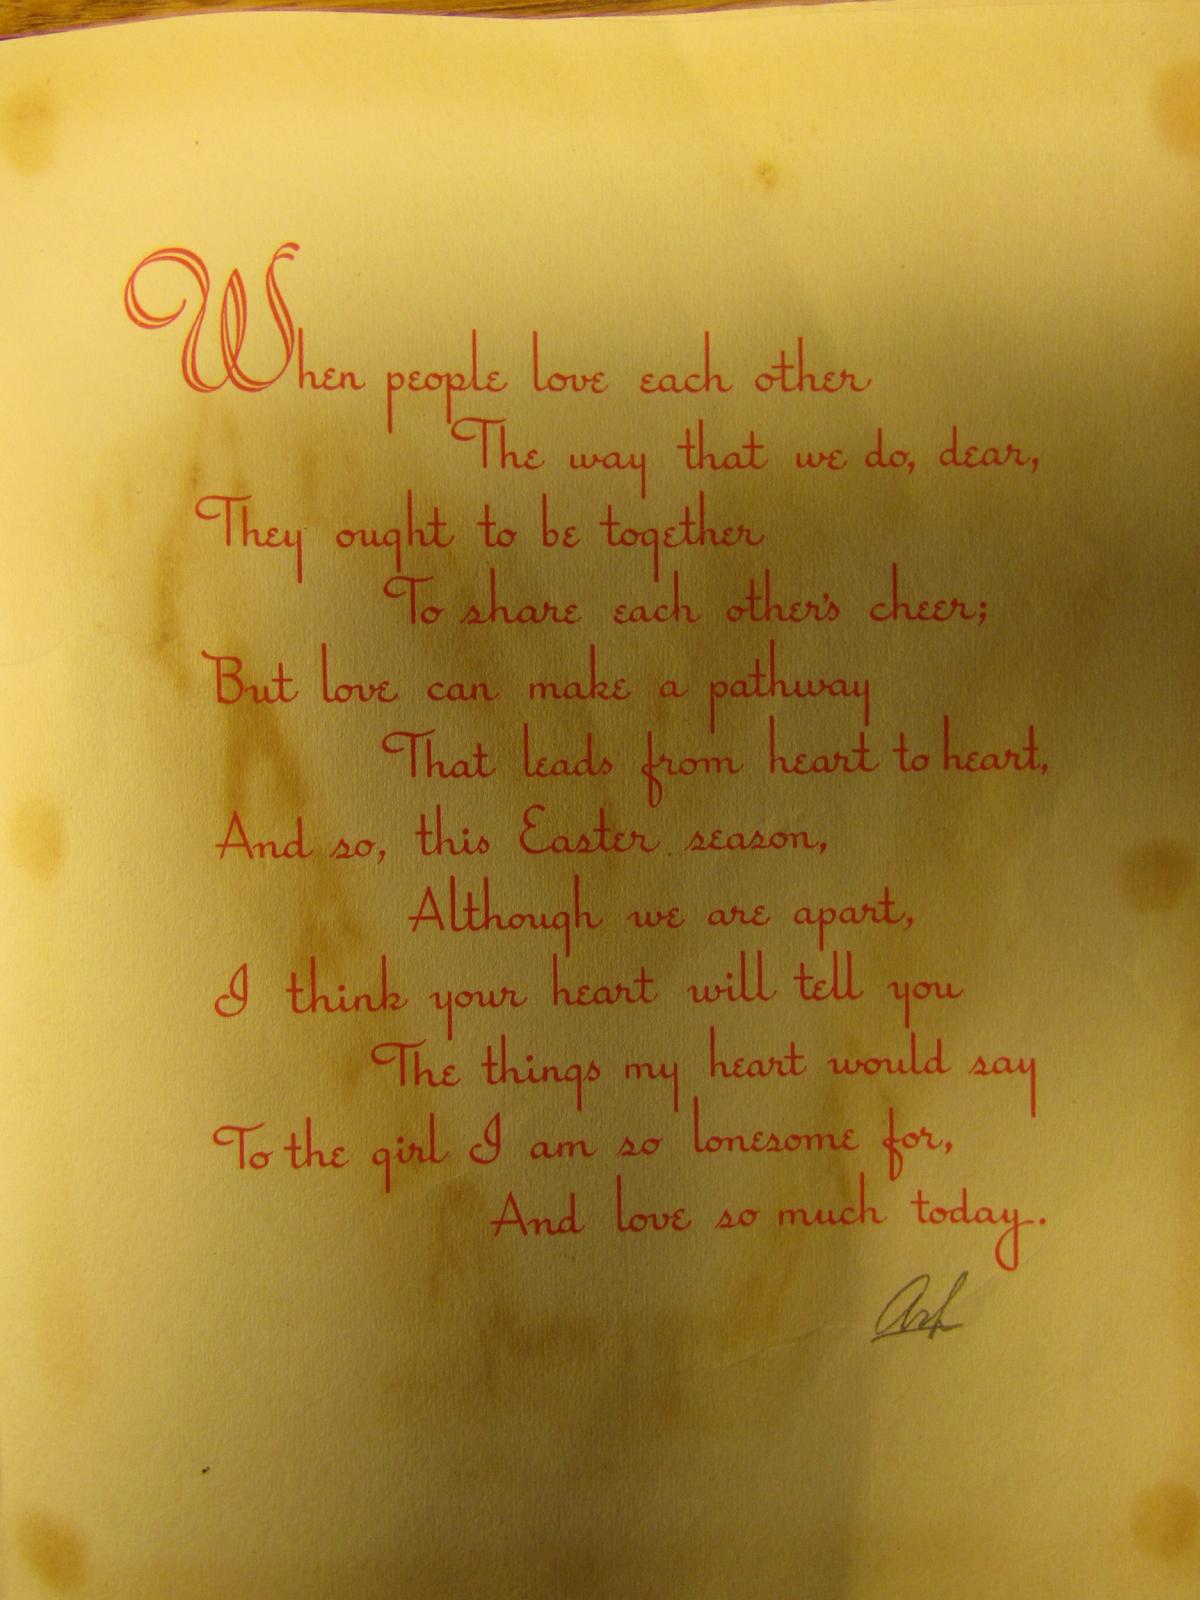 When people love each other
The way that we do, dear,
They ought to be together
To share each other's cheer;
But love can make a pathway
That leads from heart to heart,
And so, this Easter season,
Although we are apart,
I think your heart will tell you
The things my heart would say
To the girl I am so lonesome for,
And love so much today.